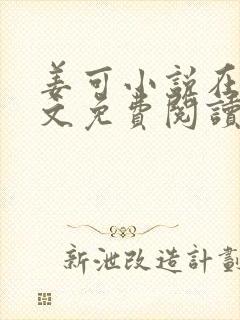 姜可小說在
文免費閱讀
新泄改造計劃